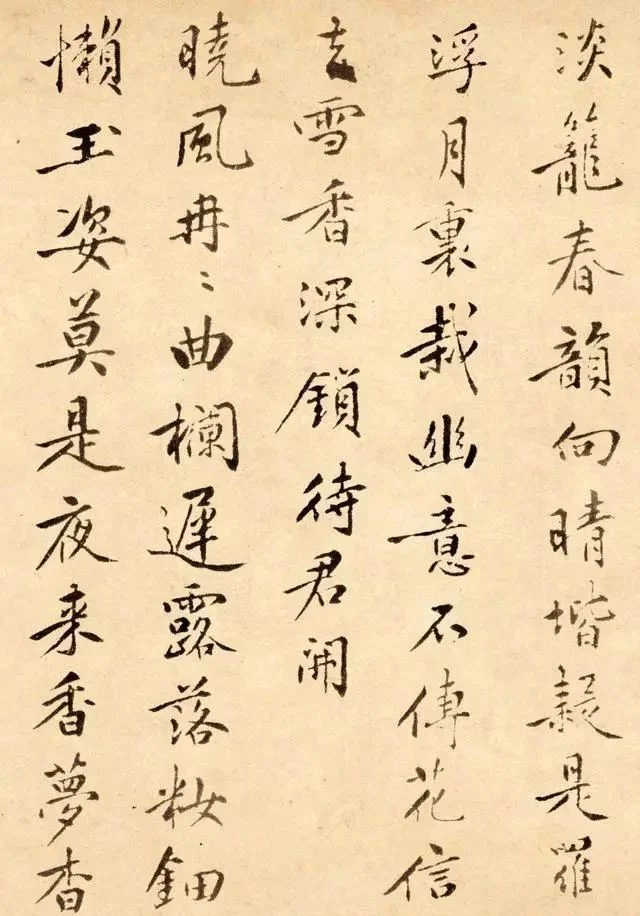 淡籠春韻向晴堦疑是羅
浮月裏栽幽意不傳花信
去雪香深鎖待君開
曉風冉〻曲欄遲露落妝鈿
懶玉姿莫是夜來香夢杳